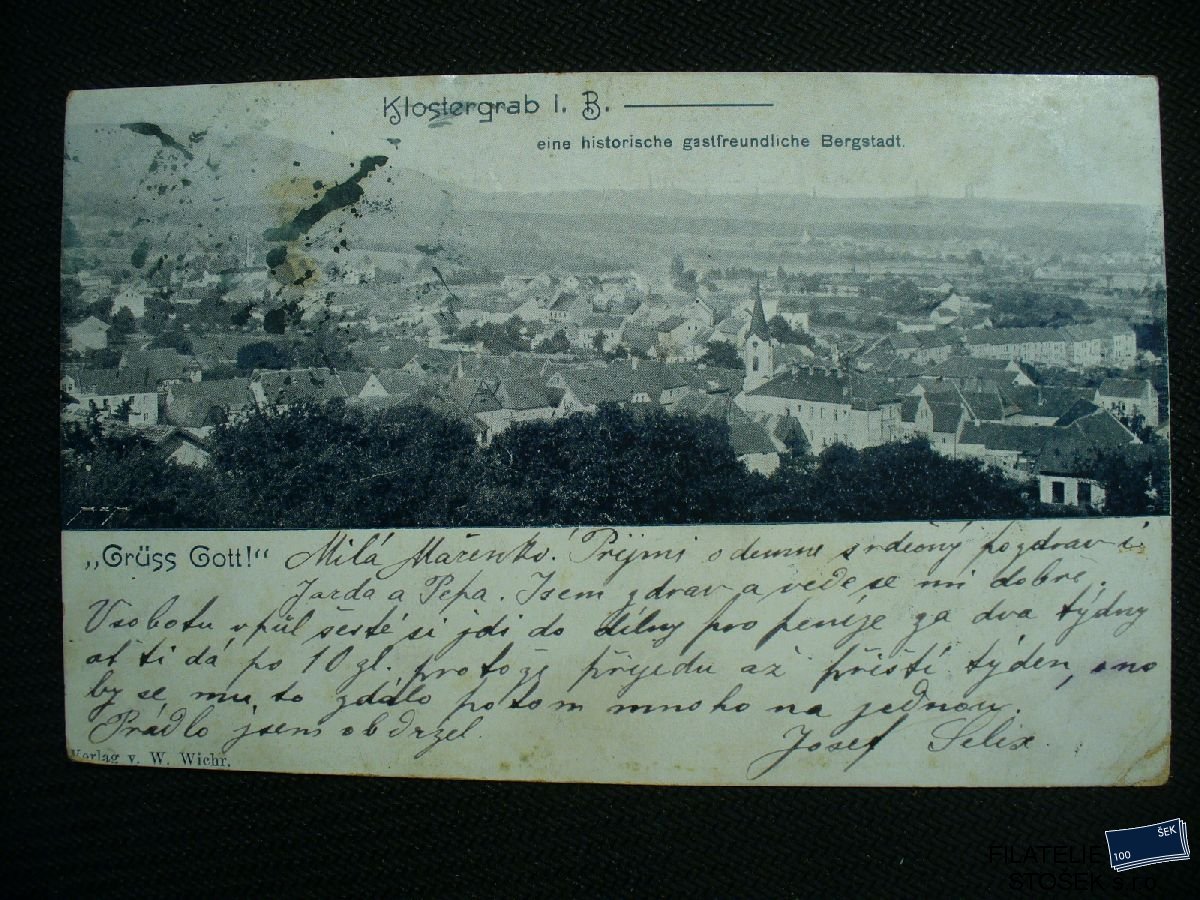 Klostergrab i. B.
eine historische gastfreundliche Bergstadt.
„Grüss Gott!“ Milá Mařenko! Přijmi odemne srdečný pozdrav i
Jarda a Pepa. Jsem zdrav a vede se mi dobře.
V sobotu v půl šesté si jdi do dílny pro peníze za dva týdny
at ti dá po 10 zl. protože přijedu až příští týden, ono
by se mu to zdálo potom mnoho na jednou.
Prádlo jsem obdrzel. Josef
Verlag v. W. Wichr.
FILATELIE
STOSEK s.r.o.
100 ŠEK